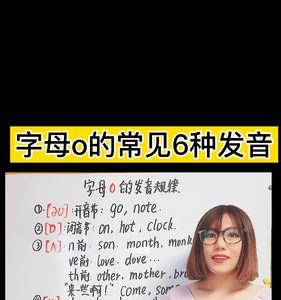 字母o的常见6种发音
字母o的发音规律
①[əʊ]:开音节: go, note.
②[ɒ]:闭音节: on, hot, clock.
③[ʌ]: n前: son. month, monk
ve前: love. dove...
th前: other, mother, bro
"来一些啊!" come, som